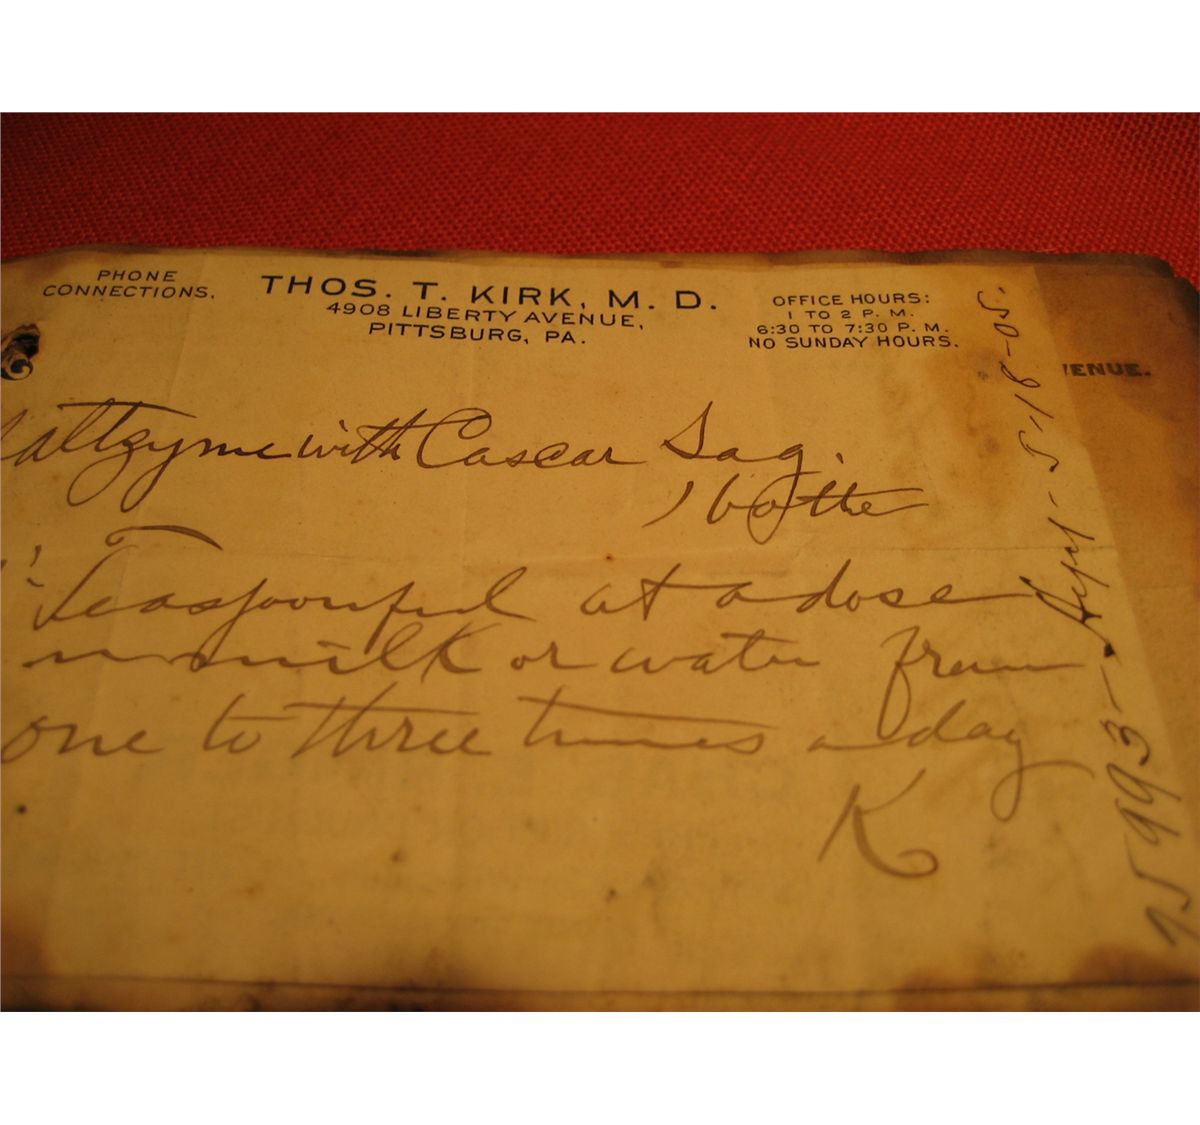 PHONE
CONNECTIONS.
THOS. T. KIRK, M. D.
4908 LIBERTY AVENUE,
PITTSBURG, PA.
OFFICE HOURS:
1 TO 2 P. M.
6:30 TO 7:30 P. M.
NO SUNDAY HOURS.
ENUE.
altzyme with Cascar Sag.
1 bottle
Teaspoonful at a dose
in milk or water from
one to three times a day
K
75993- 5-18-05.